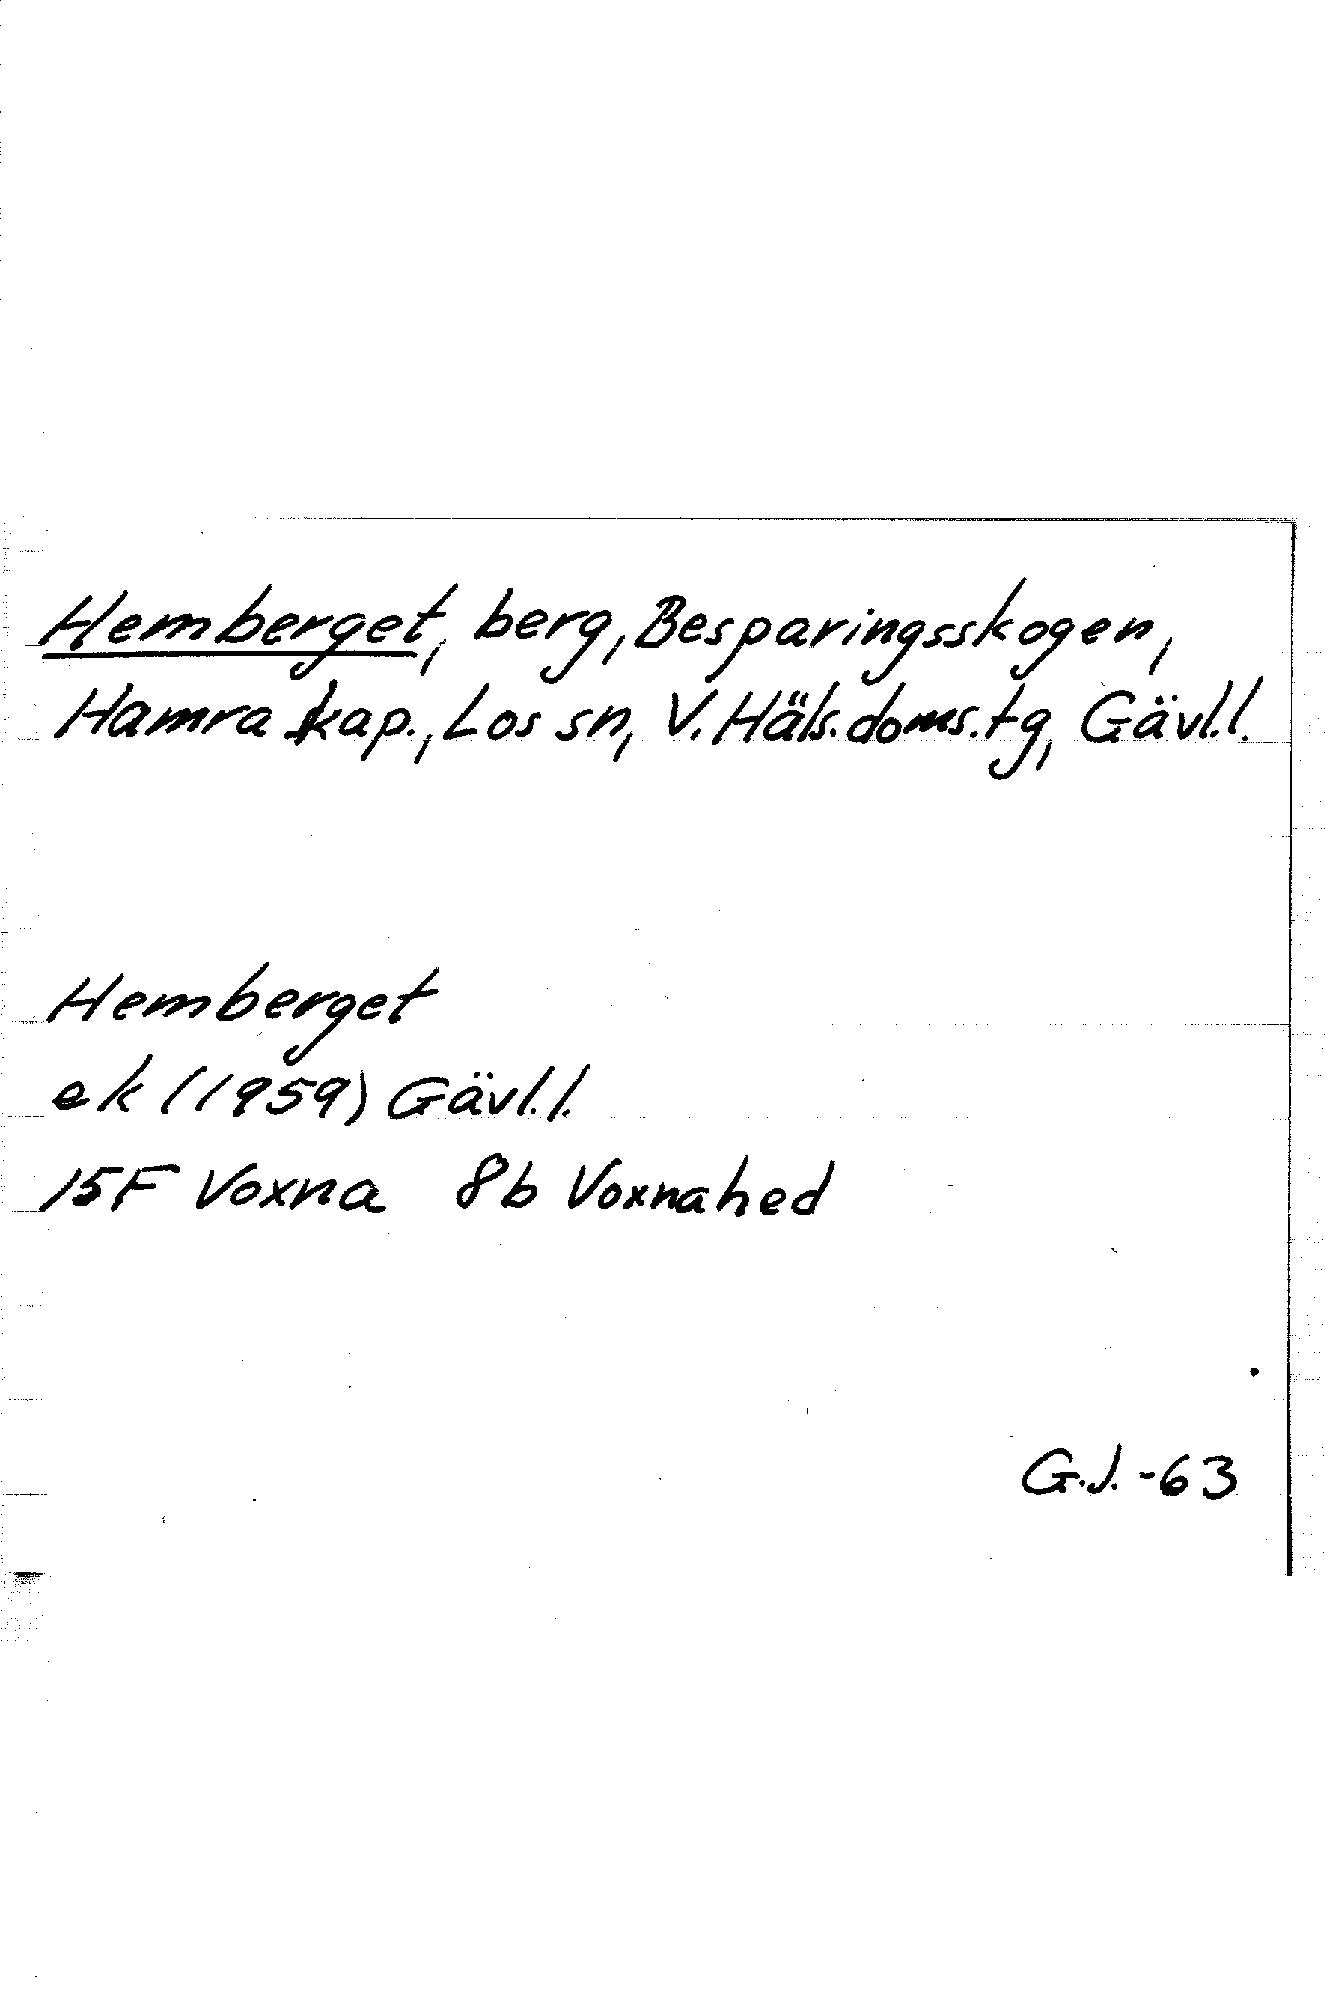 Hemberget, berg, Besparingsskogen,
Hamra kap., Los sn, V. Häls. doms. tg, Gävl.l.
Hemberget
ek (1959) Gävl.l.
15F Voxna 8b Voxnahed
G.J. -63